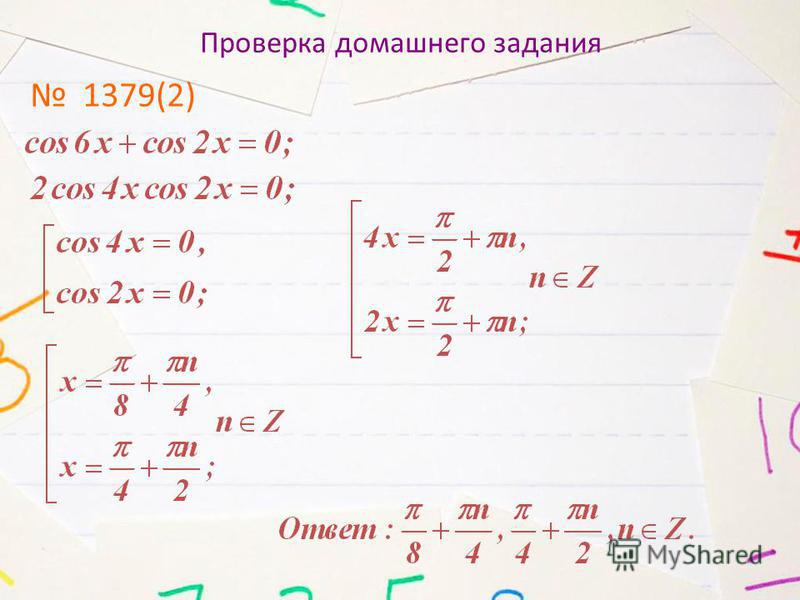 Проверка домашнего задания
№ 1379(2)
cos 6x + cos 2x = 0;
2 cos 4x cos 2x = 0;
[ cos 4x = 0,
cos 2x = 0;
[ 4x = π/2 + πn,
2x = π/2 + πn;
n ∈ Z
[ x = π/8 + πn/4,
x = π/4 + πn/2;
n ∈ Z
Ответ : π/8 + πn/4, π/4 + πn/2, n ∈ Z.
MyShared